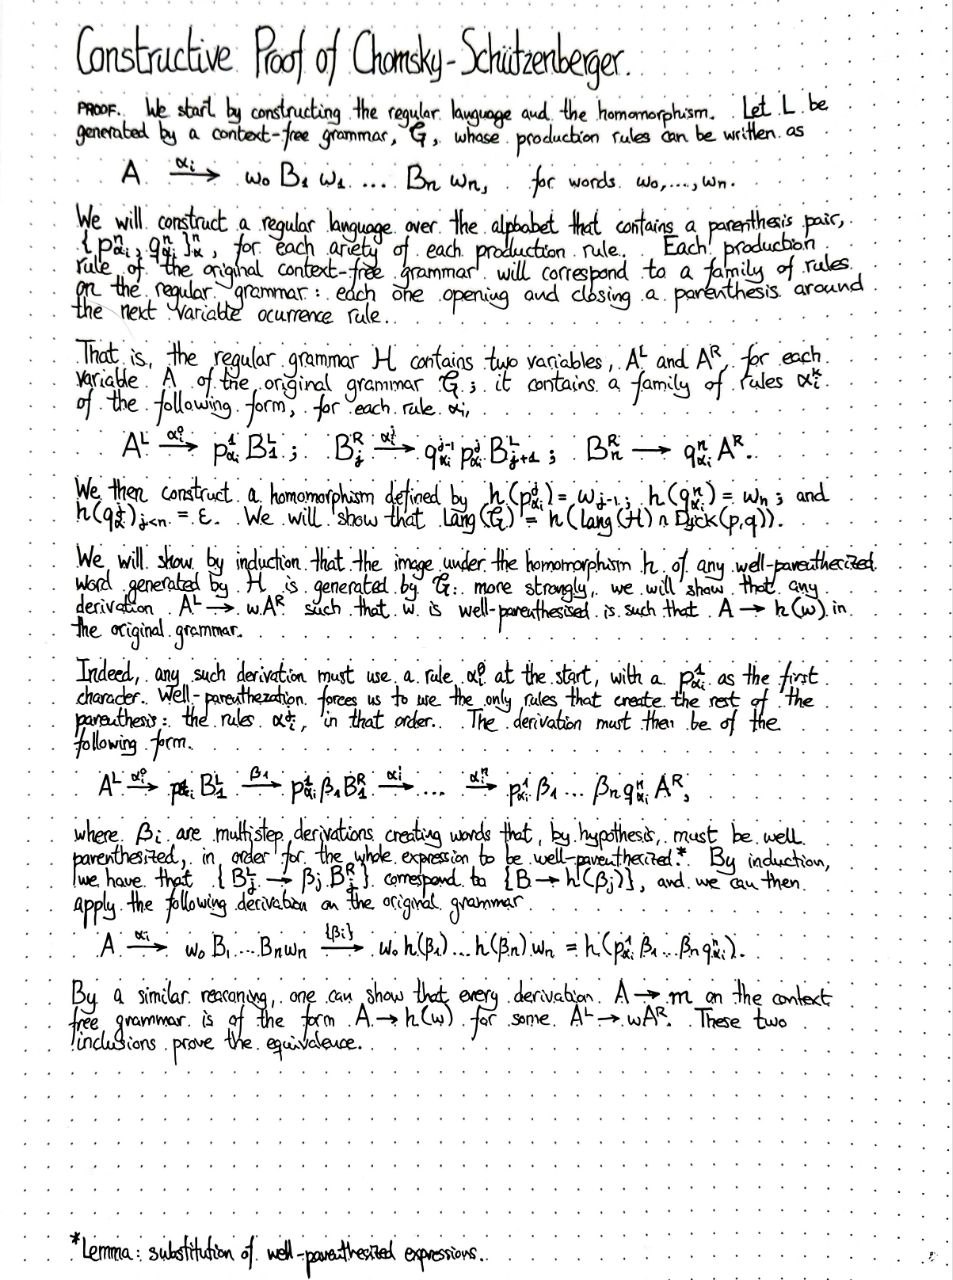 Constructive Proof of Chomsky-Schützenberger.
PROOF. We start by constructing the regular language and the homomorphism. Let L be
generated by a context-free grammar, G, whose production rules can be written as
A —αᵢ→ w₀ B₁ w₁ .... Bₙ wₙ, for words w₀,...,wₙ.
We will construct a regular language over the alphabet that contains a parenthesis pair,
{pⁿαᵢ, qⁿαᵢ}ⁿα, for each ariety of each production rule. Each production
rule of the original context-free grammar will correspond to a family of rules
on the regular grammar: each one opening and closing a parenthesis around
the next variable ocurrence rule.
That is, the regular grammar H contains two variables, Aᴸ and Aᴿ, for each
variable A of the original grammar G; it contains a family of rules αᵢᵏ
of the following form, for each rule αᵢ,
Aᴸ —αᵢ⁰→ p¹αᵢ B₁ᴸ ; Bⱼᴿ —αᵢʲ→ qʲ⁻¹αᵢ pʲαᵢ Bᴸⱼ₊₁ ; Bₙᴿ → qⁿαᵢ Aᴿ.
We then construct a homomorphism defined by h(pʲαᵢ) = wⱼ₋₁; h(qⁿαᵢ) = wₙ; and
h(qʲα)ⱼ<ₙ = ε. We will show that Lang(G) = h(lang(H) ∩ Dyck(p,q)).
We will show by induction that the image under the homomorphism h of any well-parenthesized
word generated by H is generated by G: more strongly, we will show that any
derivation Aᴸ → wAᴿ such that w is well-parenthesised is such that A → h(w) in
the original grammar.
Indeed, any such derivation must use a rule αᵢ⁰ at the start, with a p¹αᵢ as the first
character. Well-parenthezation forces us to use the only rules that create the rest of the
parenthesis: the rules αᵢʲ, in that order. The derivation must then be of the
following form.
Aᴸ —αᵢ⁰→ p¹αᵢ B₁ᴸ —β₁→ p¹αᵢ β₁B₁ᴿ —αᵢ¹→ .... —αᵢⁿ→ p¹αᵢ β₁... βₙqⁿαᵢ Aᴿ,
where βᵢ are multistep derivations creating words that, by hypothesis, must be well
parenthesized, in order for the whole expression to be well-parenthesized*. By induction,
we have that {Bⱼᴸ → βⱼ Bⱼᴿ} correspond to {B → h(βⱼ)}, and we can then
apply the following derivation on the original grammar
A —αᵢ→ w₀ B₁...Bₙwₙ —{βᵢ}→ w₀ h(β₁)...h(βₙ) wₙ = h(p¹αᵢ β₁...βₙqⁿαᵢ).
By a similar reasoning, one can show that every derivation A → m on the context
free grammar is of the form A → h(w) for some Aᴸ → wAᴿ. These two
inclusions prove the equivalence.
*Lemma: substitution of well-parenthesized expressions.